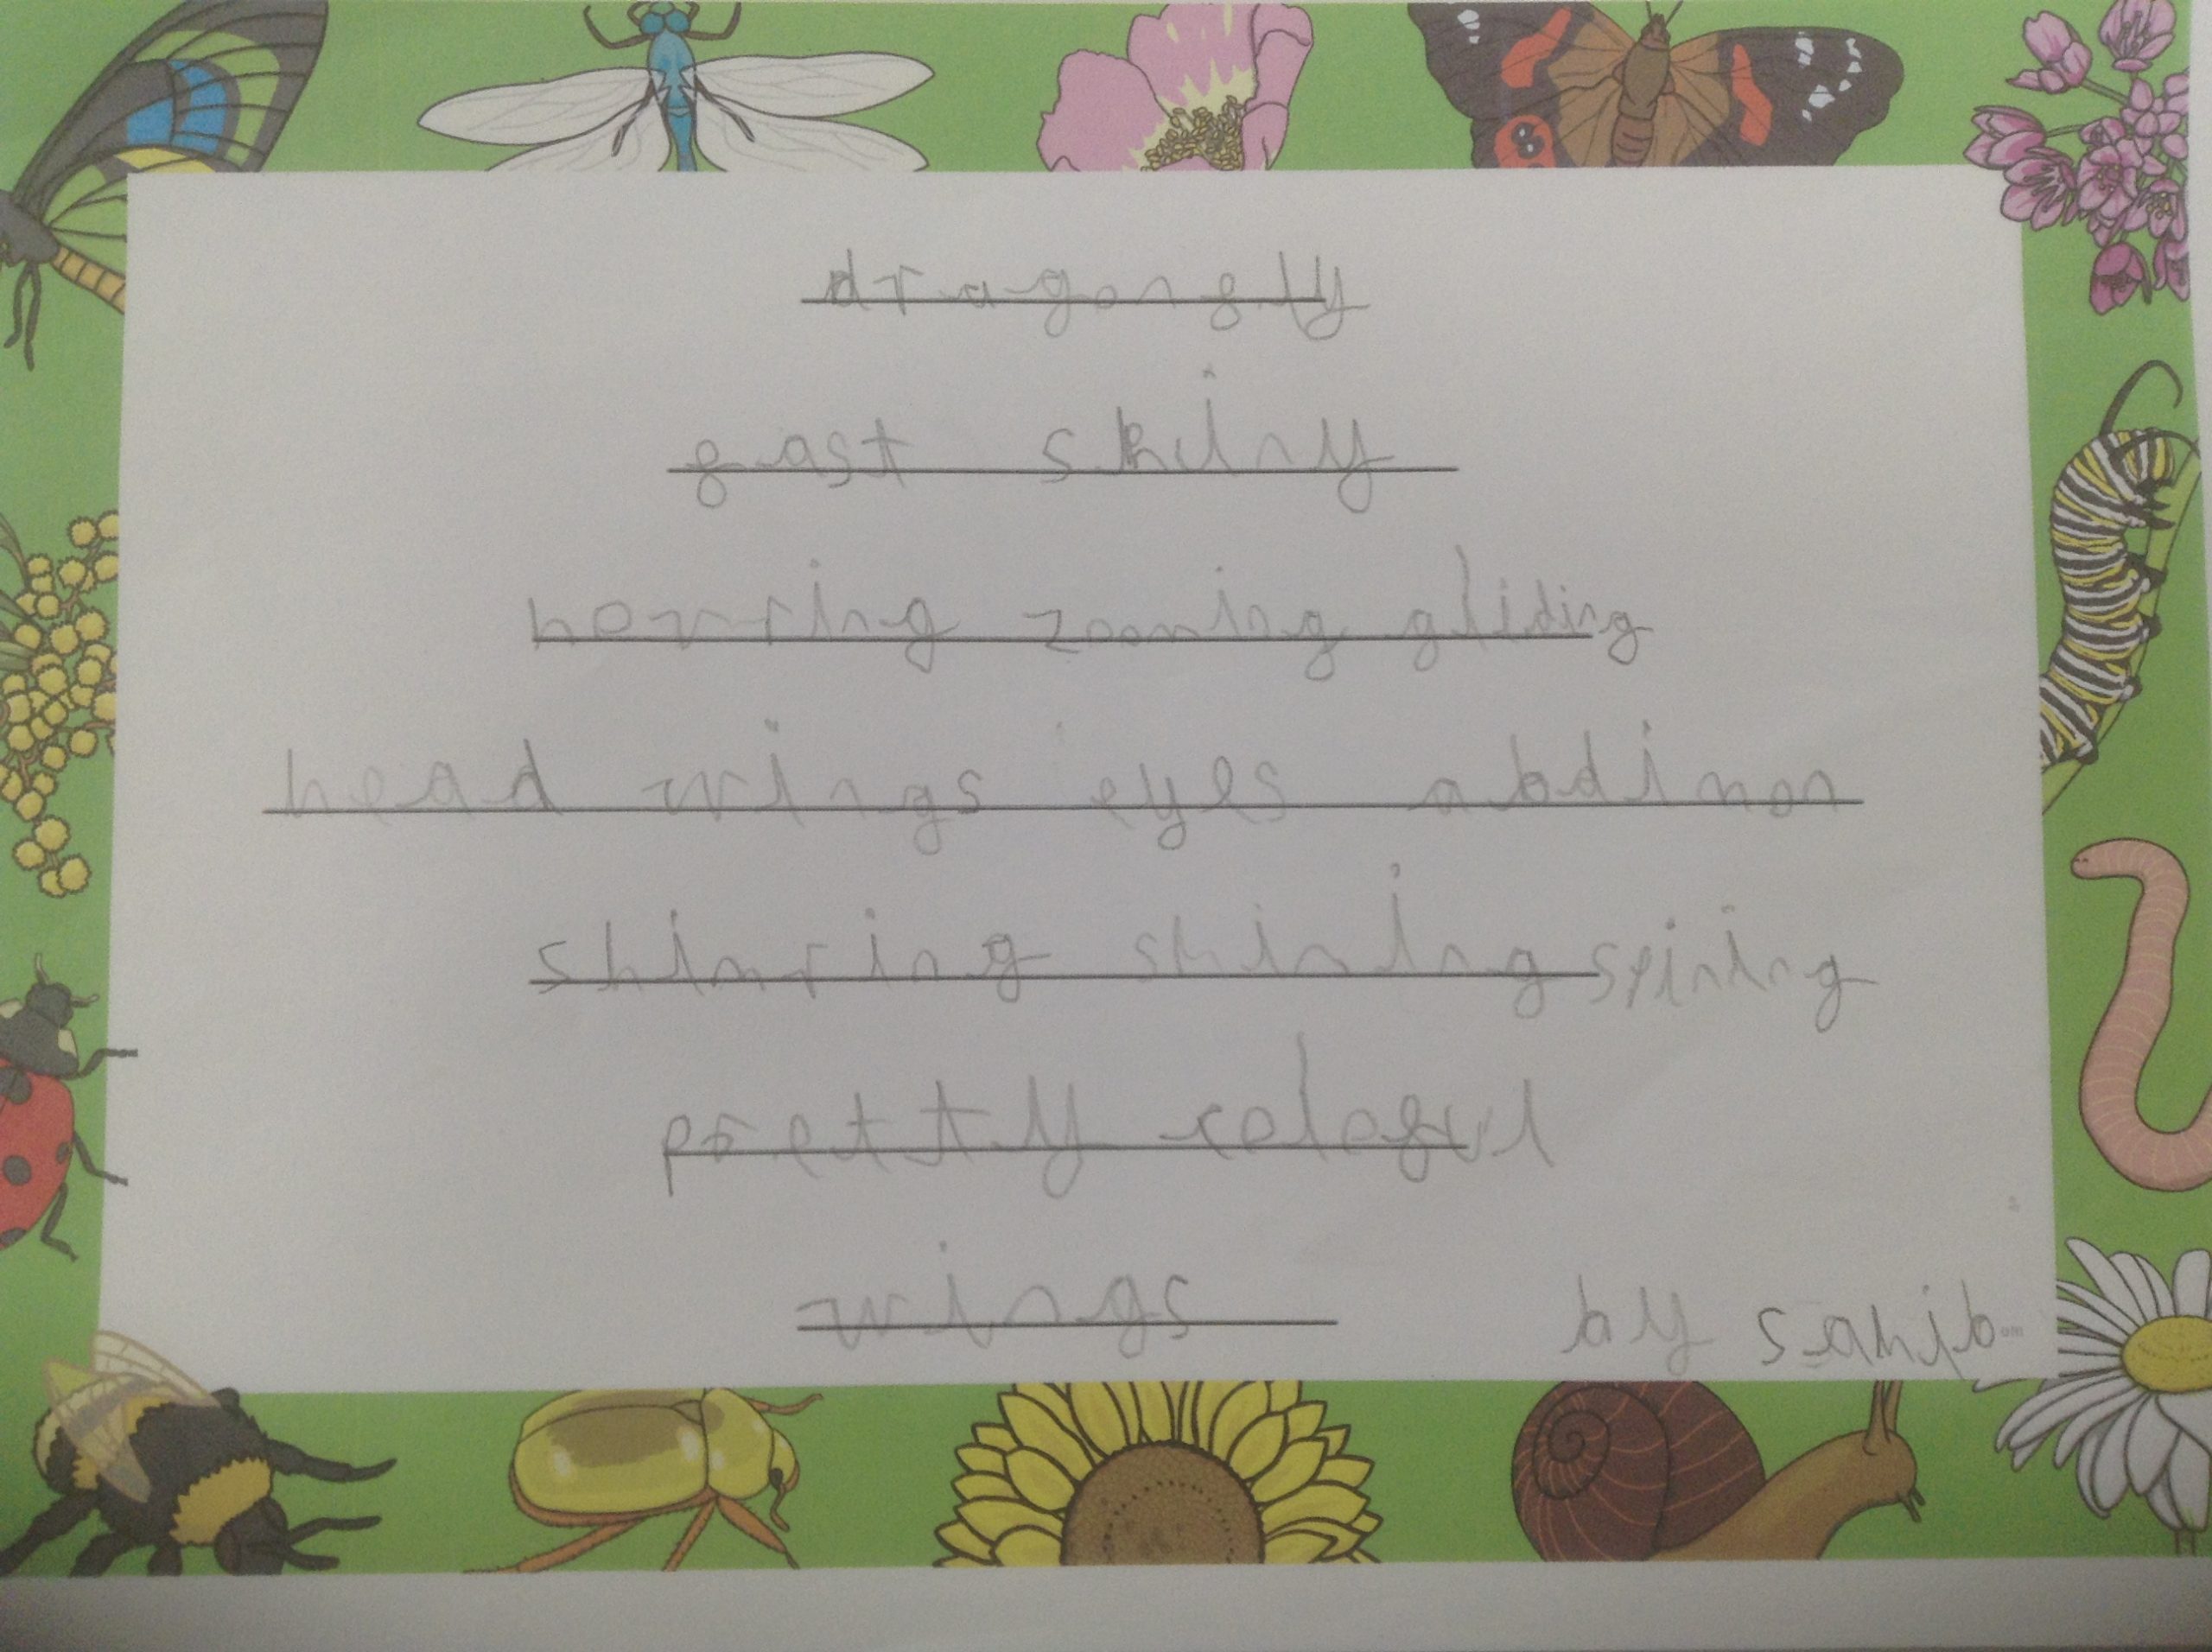 dragonfly
fast shiny
hovring zoming gliding
head wings eyes abdimon
shimring shining spining
pretty coloful
wings
by sahib